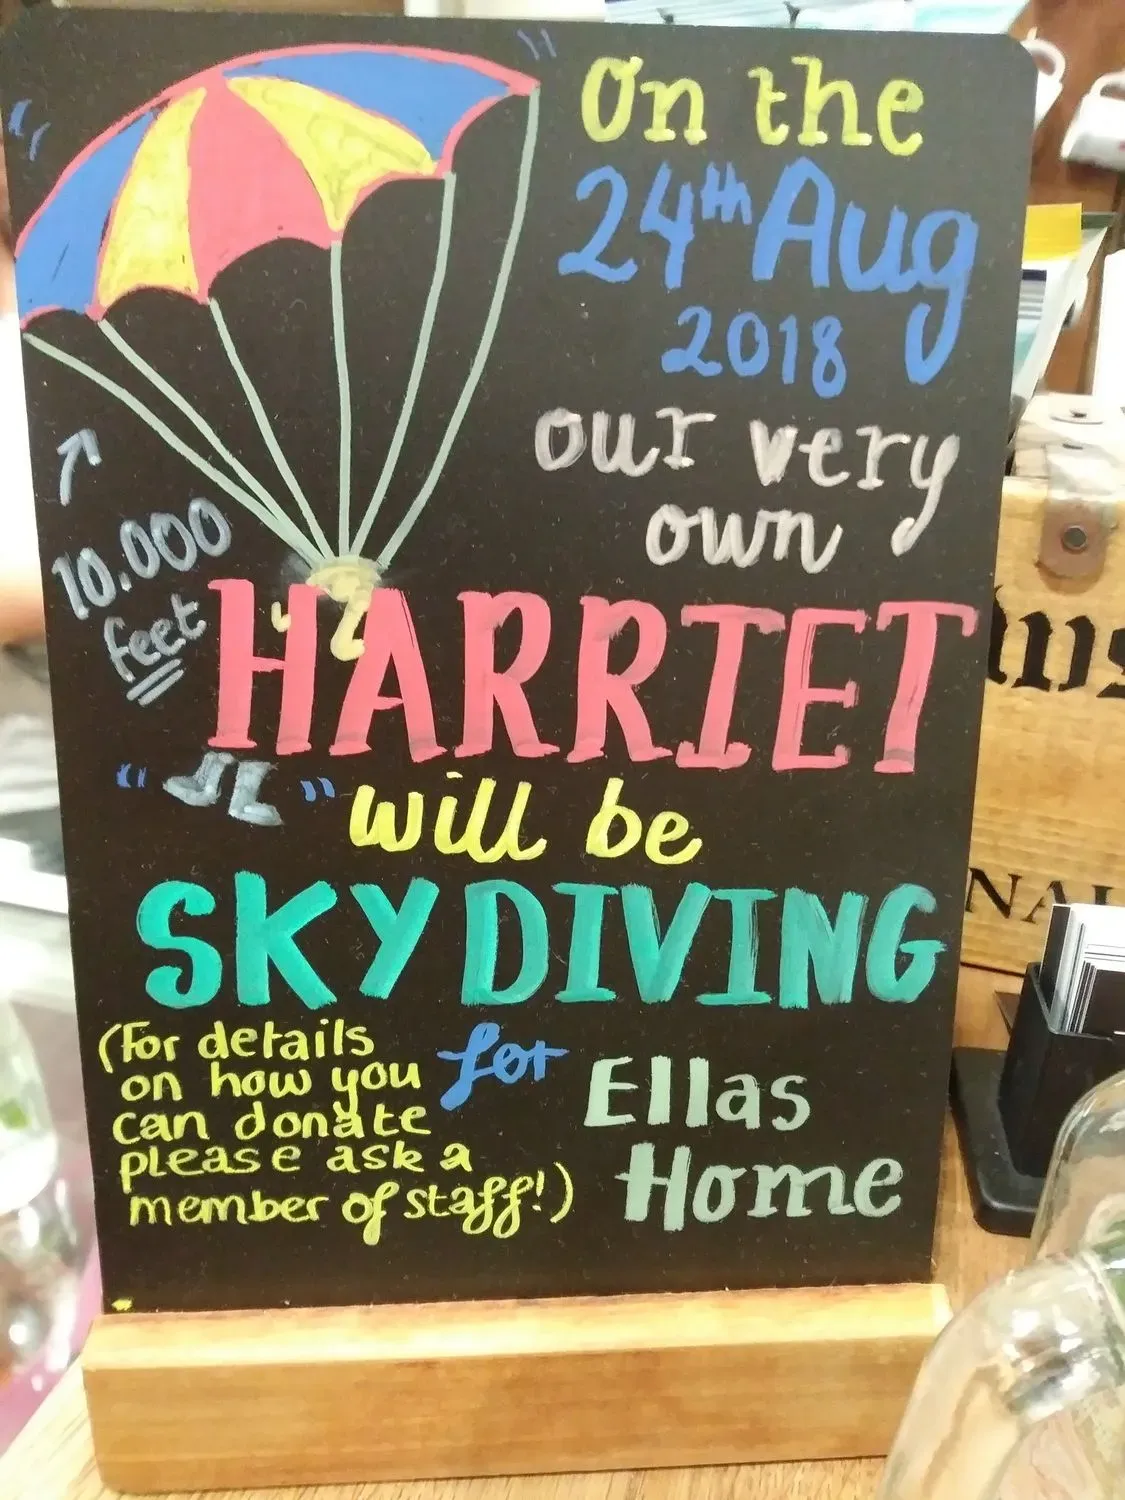 On the
24th Aug
2018
our very
own
10.000
feet
HARRIET
will be
SKYDIVING
for
Ellas
Home
(For details
on how you
can donate
please ask a
member of staff!)